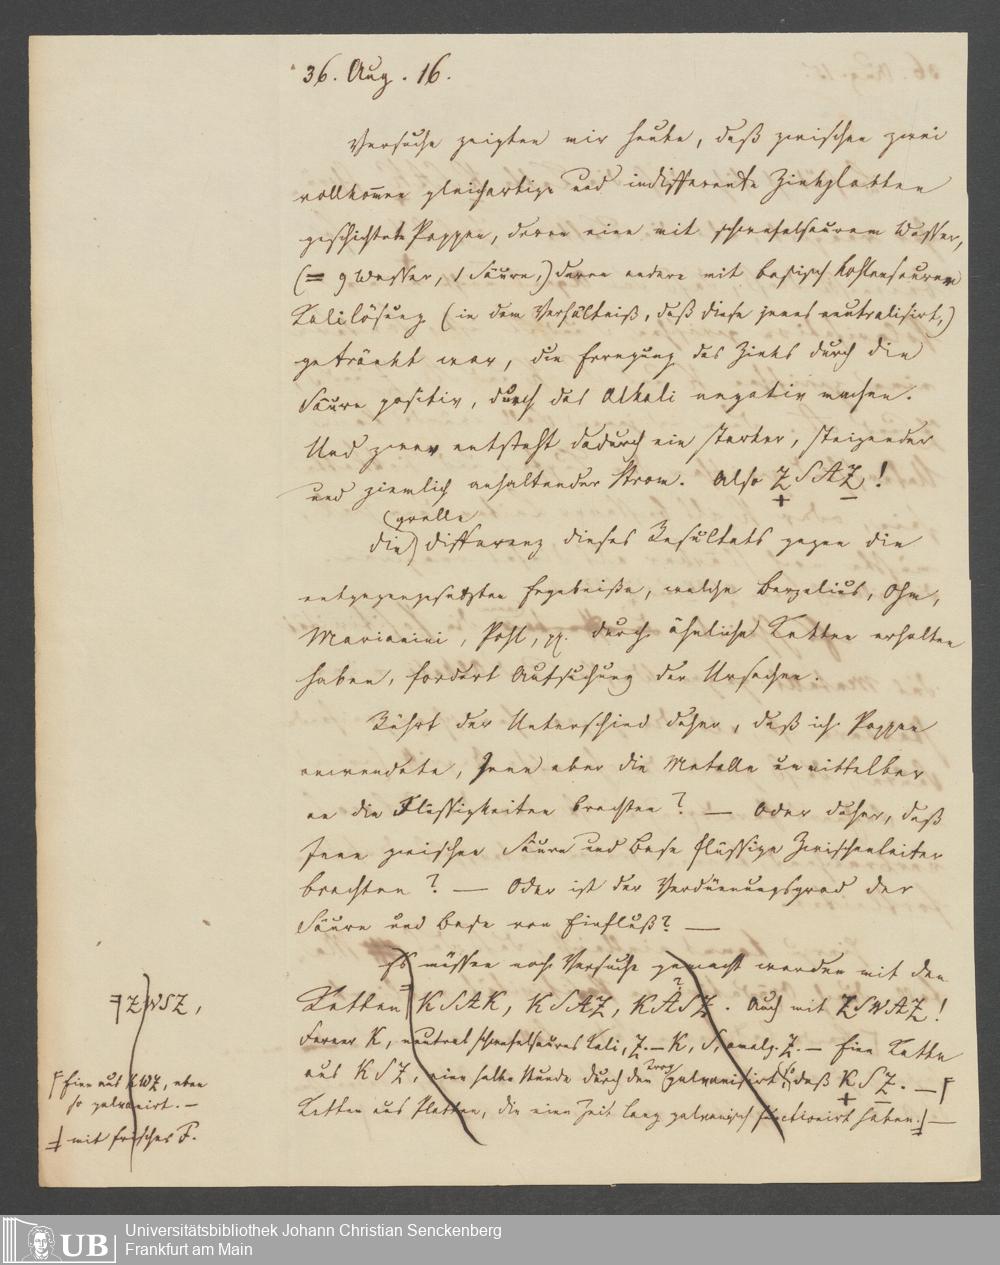 36. Aug. 16.
Versuche zeigten mir heute, daß zwischen zwei
vollkom̄en gleichartige und indifferente Zinkplatten
geschichtete Pappen, deren eine mit schwefelsaurem Wasser,
(= 9 Wasser, 1 Säure,) deren andere mit basisch kohlensaurer
Kalilösung (in dem Verhältniß, daß diese jenes neutralisirt,)
getränkt war, die Erregung des Zinks durch die
Säure positiv, durch das Alkali negativ machen.
Und zwar entsteht dadurch ein starker, steigender
und ziemlich anhaltender Strom. Also Z S A Z !
+ –
grelle
Die Differenz dieses Resultats gegen die
entgegengesetzten Ergebniße, welche Berzelius, Ohm,
Marianini, Pohl, pp. durch ähnliche Ketten erhalten
haben, fordert Aufsuchung der Ursachen.
Rührt der Unterschied daher, daß ich Pappen
anwendete, Jene aber die Metalle unmittelbar
an die Flüssigkeiten brachten? — Oder daher, daß
Jene zwischen Säure und Base flüssige Zwischenleiter
brachten? — Oder ist der Verdünnungsgrad der
Säure und Base von Einfluß? —
Es müssen noch Versuche gemacht werden mit den
Ketten K S A K, K S A Z, K A S Z. Auch mit Z S W A Z !
?
Ferner K, neutral schwefelsaures Kali, Z. — K, S, amalg. Z. — Eine Kette
aus K S Z, eine halbe Stunde durch den Trog galvanisirt, so daß K S Z. —
+ –
Ketten aus Platten, die eine Zeit lang galvanisch functionirt haben. —
Z W S Z,
Eine aus K W Z, eben
so galvanisirt. —
mit frisches F.
Universitätsbibliothek Johann Christian Senckenberg
Frankfurt am Main
UB